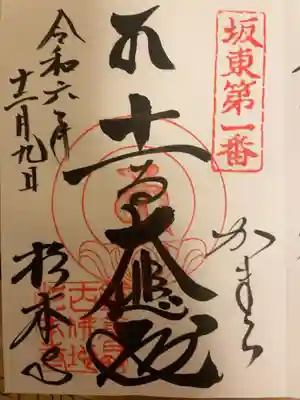 坂東第一番
かまくら
十一面大悲殿
令和六年
十二月九日
杉本寺
古佛地